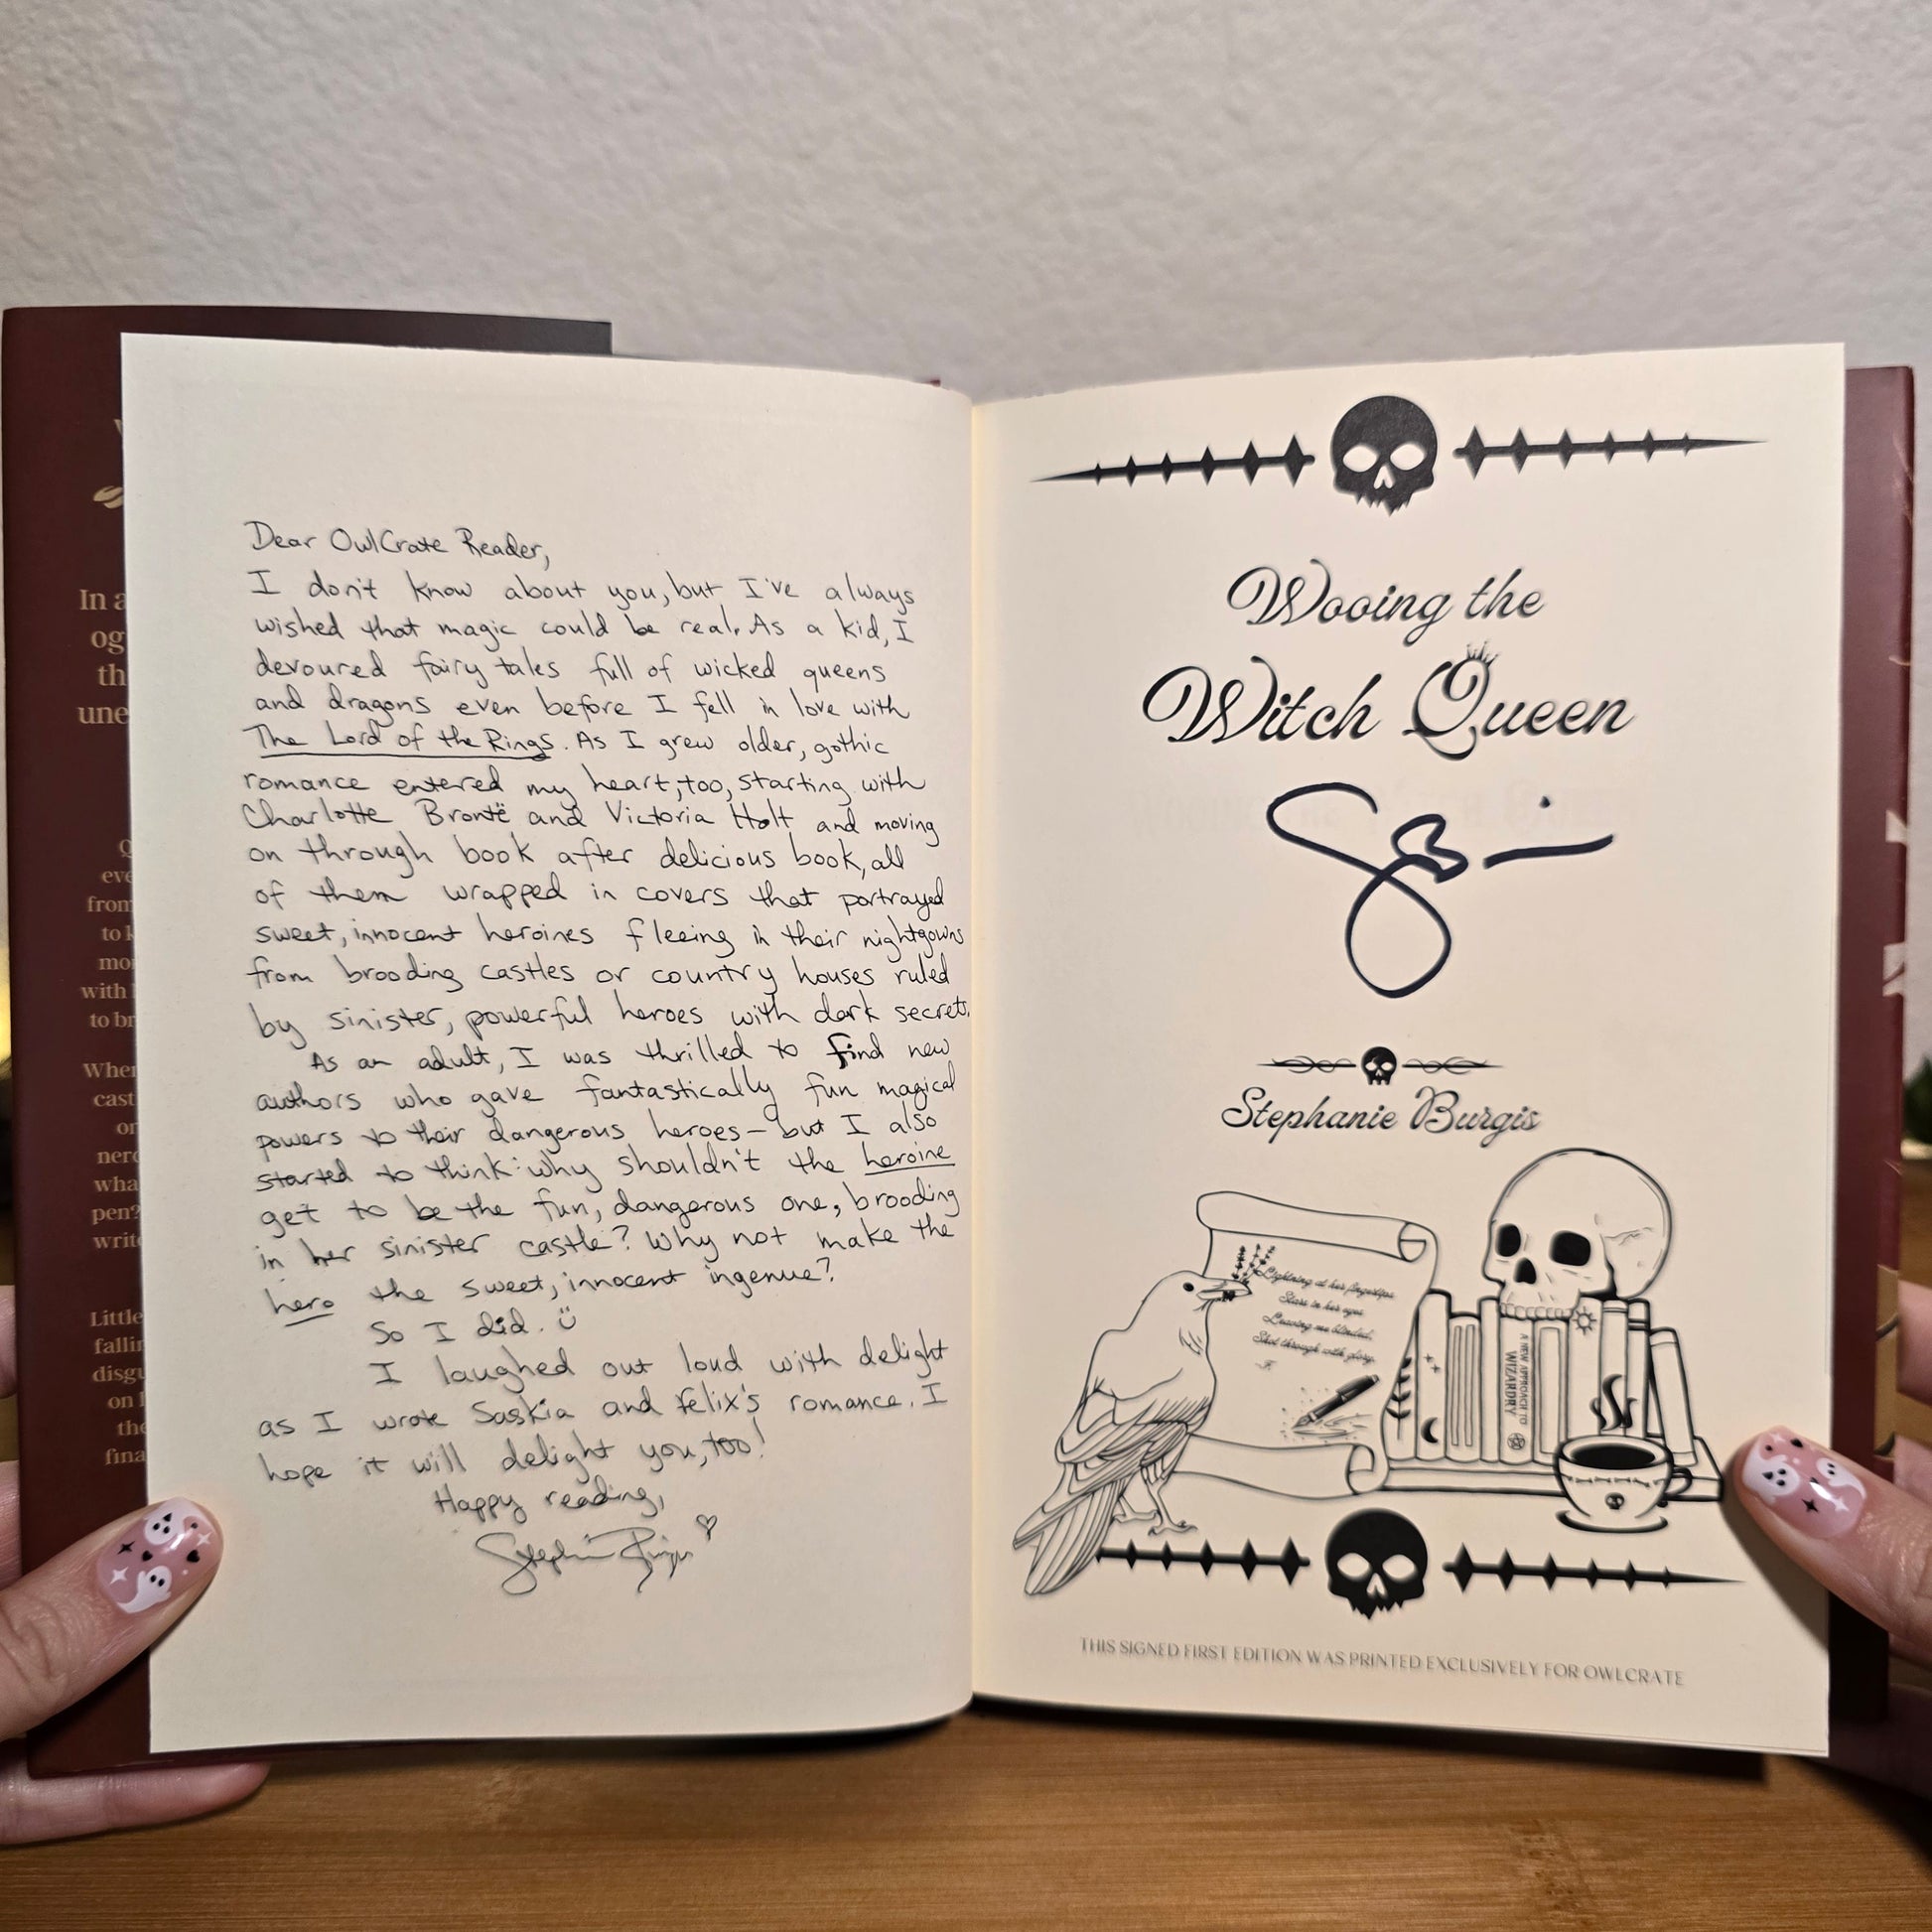 Dear OwlCrate Reader,
I don't know about you, but I've always
wished that magic could be real. As a kid, I
devoured fairy tales full of wicked queens
and dragons even before I fell in love with
The Lord of the Rings. As I grew older, gothic
romance entered my heart, too, starting with
Charlotte Brontë and Victoria Holt and moving
on through book after delicious book, all
of them wrapped in covers that portrayed
sweet, innocent heroines fleeing in their nightgowns
from brooding castles or country houses ruled
by sinister, powerful heroes with dark secrets.
As an adult, I was thrilled to find new
authors who gave fantastically fun magical
powers to their dangerous heroes – but I also
started to think: why shouldn't the heroine
get to be the fun, dangerous one, brooding
in her sinister castle? Why not make the
hero the sweet, innocent ingenue?
So I did. :)
I laughed out loud with delight
as I wrote Saskia and Felix's romance. I
hope it will delight you, too!
Happy reading,
Stephanie Burgis ♡
Wooing the
Witch Queen
Stephanie Burgis
Lightning at her fingertips,
Stars in her eyes
Leaving me blinded,
Shot through with glory.
-F.
A NEW APPROACH TO
WIZARDRY
THIS SIGNED FIRST EDITION WAS PRINTED EXCLUSIVELY FOR OWLCRATE
In a
og
th
une
eve
from
to k
mo
with
to br
When
cast
or
nerd
wha
pen?
write
Little
fallin
disgu
on
the
fina